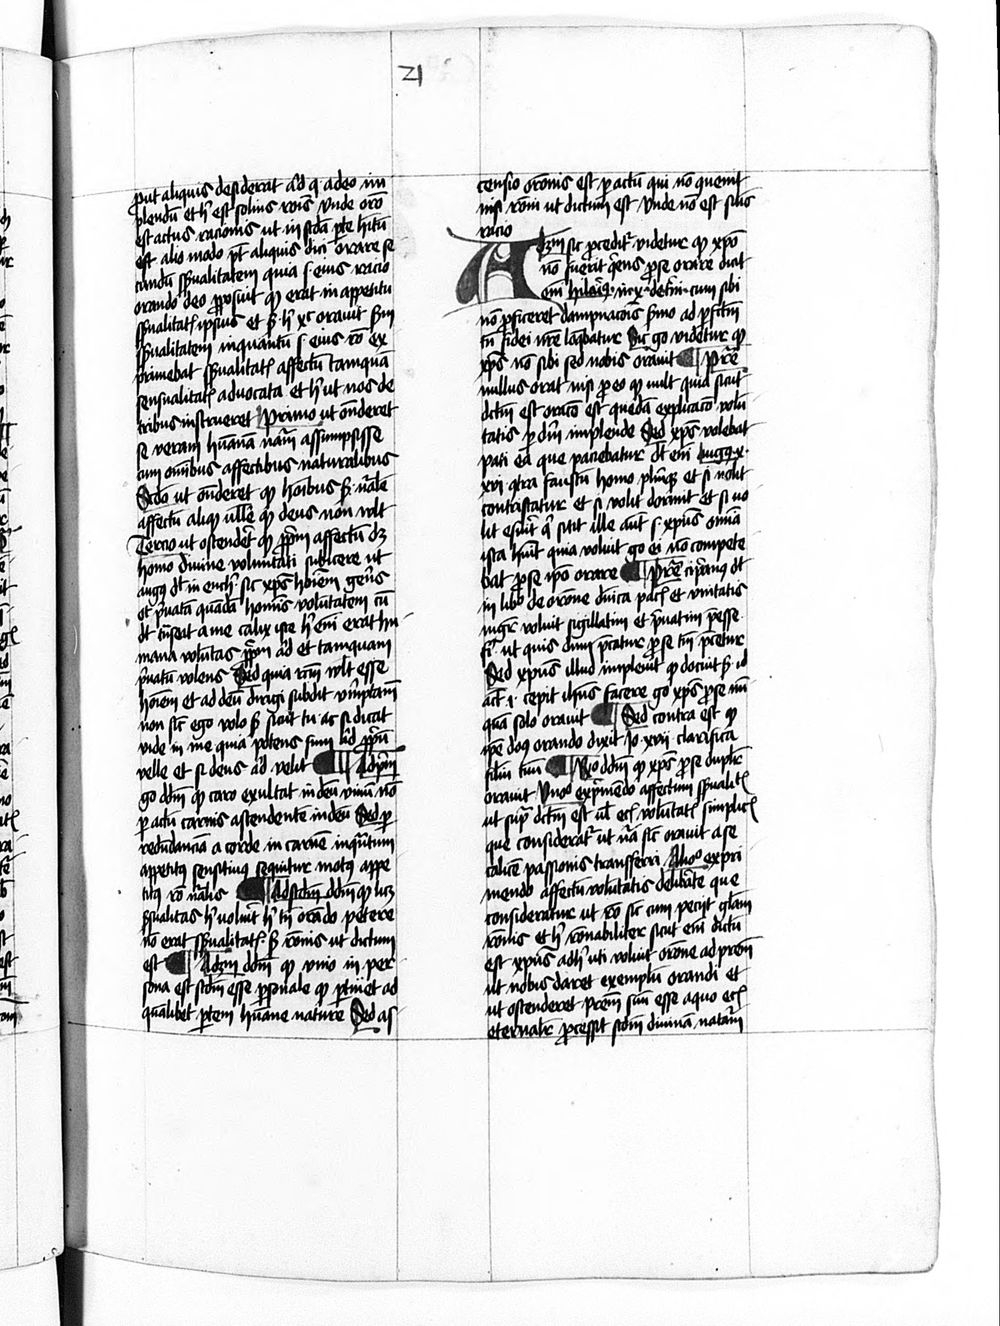 21
put aliquis desiderat aliqd q a deo im
plendū et h̄ est solius rōis vnde orō
est actus racionis ut in scđa p̄te hītū
est alio modo pt̄ aliquis dici orare se
cundū sp̄ualitatem quia s eius racio
orando deo p̄posuit qp erat in appetitu
sp̄ualitat ipsius et s̄ h̄ xc orauit s̄m
sp̄ualitatem inquantū s eius rō ex
primebat sp̄ualitat affectū tamquā
sensualitat aduocata et h̄ ut nos de
tribus instrueret Primo ut ōnderet
se veram hūanā nat̄m assumpsisse
cum om̄ibus affectibus naturalibus
Scđo ut ōnderet qp hoībus s̄ nr̄ale
affectū aliqp ul̄le qp deus non wlt
Tercio ut ostendet qp p̄p̄m affectū dz
homo diuine voluntati subicere ut
augꝯ dt̄ in ench sic xp̄s hoīem gerēs
on̄d p̄uatā quādā homīs volūtatem cū
dt̄ trāseat a me calix iste h̄ em̄ erat hu
mana volūtas p̄p̄m ad et tamquam
p̄uatū volens Sed quia rc̄m wlt esse
hoīem et ad deū dirigi subdit v̄mptamē
non sic ego volo s̄ sicut tu ac si dicat
vide in me quia potens sum aliqd p̄p̄m
velle et si deus aliđ velit Ad p̄m
go dōm qp caro exultat in deū viuū nō
p actū carnis ascendentē in deū Sed p
redūdanciā a corde in carnē inq̄tum
appetitꝯ sensitiuꝯ sequitur motꝯ appe
titꝯ rō nālis Ad scđm dōm qp licz
s̄sualitas h̄ voluit h̄ tn̄ orādo petere
nō erat sp̄ualitat s̄ rōnis ut dictum
est Ad 3m dōm qp vnio in per
sona est scđm esse p̄sonale qp p̄tinet ad
quālibet p̄tem hūane nature Sed as
censio orōnis est p actū qui nō quenit
nisi rōni ut dictum est Vnde nō est silis
racio
Ad 3m sic p̄cedit videtur qp xpō
nō fuerit q̄ens p se orare dicit
em̄ hilariꝯ in x de trin cum sibi
nō p̄ficeret deprecacōis s̄mo ad p̄fctm̄
tn̄ fidei nr̄e loq̄batur Sic go videtur qp
xp̄s nō sibi sed nobis orauit Pret̄
nullus orat nisi p eo qp wlt quia sicut
dctm̄ est oracō est quedā explicacō volū
tatis p dm̄ implende Sed xp̄s volebat
pati ea que paciebatur dt̄ em̄ augꝯ x
xvi q̄tra faustū homo pl̄mqꝫ et si nolit
contristatur et si volit dormit et si no
lit esurit q̄ sitit ille aut̄ s xp̄us om̄ia
ista hūit quia voluit go ei nō compete
bat p se ipō orare Pret̄ cip̄anꝯ dt̄
in libō de orōne dn̄ica pacꝯ et vnitatis
mgr̄ voluit sigillatim et p̄uatim p̄cesse
fi ut quis dum p̄catur p se tm̄ p̄cetur
Sed xp̄us illud impleuit qp docuit s̄ id
act i cepit ihꝯus facere go xp̄s p se nū
quā solo orauit Sed contra est qp
ipē dn̄s orando dixit Jo xvii clarifica
filiū tuū R̄o dōm qp xp̄s p se duplic
orauit Vno exp̄mēdo affectum sp̄ualit
ut sup̄ dctm̄ est ul̄ ecꝯ volūtat simplic
que considerat ut nā sic orauit a se
calicē passionis transferri Alioº expri
mendo affectū volūtatis delib̄ate que
consideratur ut rō sic cum peciit gl̄am
rōnis et h̄ rōnabiliter sicut em̄ dictū
est xp̄us ad h̄ uti voluit orōne ad p̄rem
ut nobis daret exemplū orandi et
ut ostenderet p̄rem suū esse a quo ecꝯ
eternalr̄ p̄cessit scđm diuinā natam̄